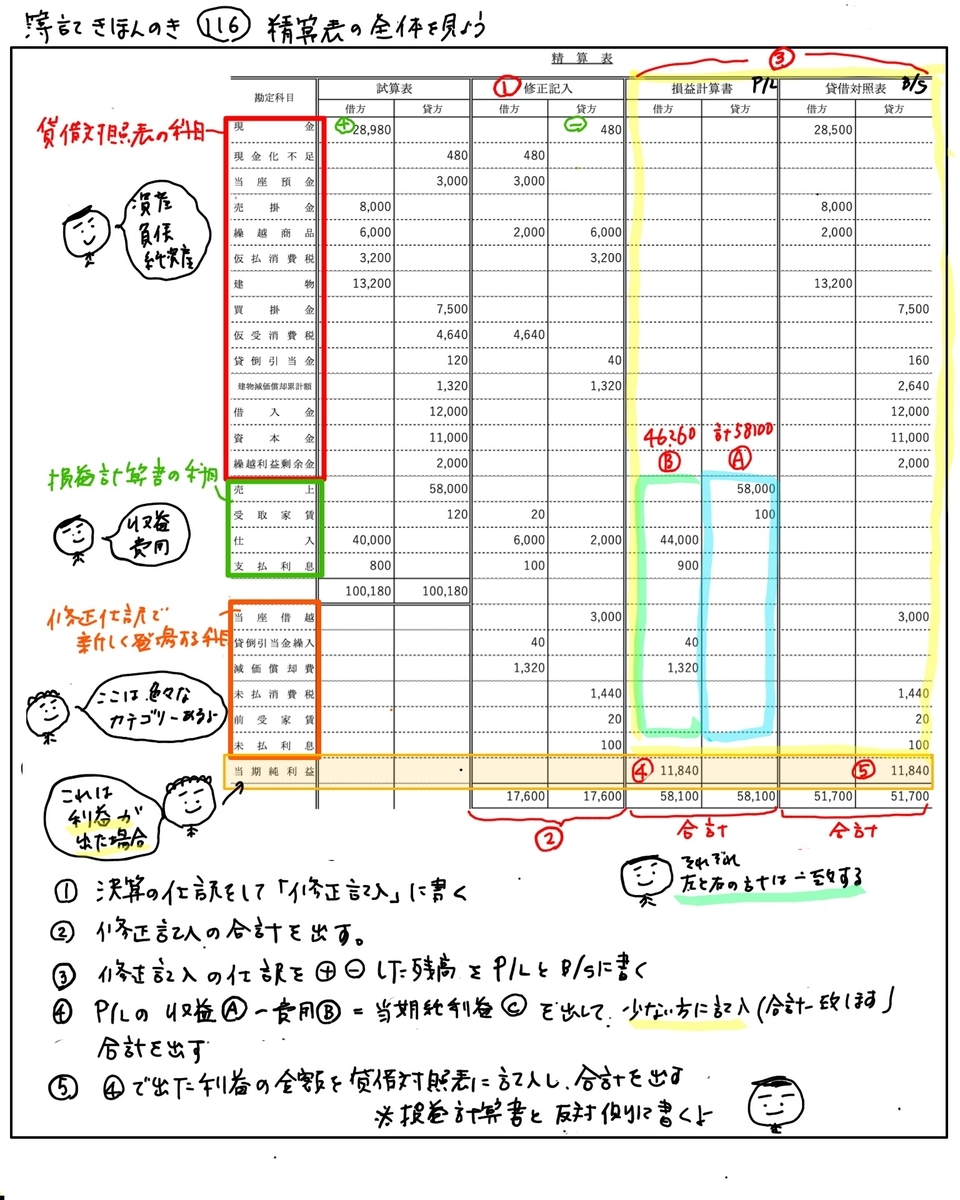 簿記きほんのき 116 精算表の全体を見よう
精算表
③
勘定科目 試算表 ① 修正記入 損益計算書 P/L 貸借対照表 B/S
借方 貸方 借方 貸方 借方 貸方 借方 貸方
貸借対照表の科目
現金 + 28,980 − 480 28,500
現金化不足 480 480
当座預金 3,000 3,000
売掛金 8,000 8,000
繰越商品 6,000 2,000 6,000 2,000
仮払消費税 3,200 3,200
建物 13,200 13,200
買掛金 7,500 7,500
仮受消費税 4,640 4,640
貸倒引当金 120 40 160
建物減価償却累計額 1,320 1,320 2,640
借入金 12,000 12,000
資本金 11,000 11,000
繰越利益剰余金 2,000 2,000
資産
負債
純資産
46260 計58100
Ⓑ Ⓐ
損益計算書の科目
売上 58,000 58,000
受取家賃 120 20 100
仕入 40,000 6,000 2,000 44,000
支払利息 800 100 900
100,180 100,180
収益
費用
修正仕訳で
新しく登場する科目
当座借越 3,000 3,000
貸倒引当金繰入 40 40
減価償却費 1,320 1,320
未払消費税 1,440 1,440
前受家賃 20 20
未払利息 100 100
ここは色々な
カテゴリーあるよ
当期純利益 ④ 11,840 ⑤ 11,840
17,600 17,600 58,100 58,100 51,700 51,700
② 合計 合計
これは
利益が
出た場合
それぞれ
左と右の計は一致する
① 決算の仕訳をして「修正記入」に書く
② 修正記入の合計を出す。
③ 修正記入の仕訳を⊕⊖した残高をP/LとB/Sに書く
④ P/Lの収益Ⓐ−費用Ⓑ=当期純利益Ⓒを出して、少ない方に記入(合計一致します」
合計を出す
⑤ ④で出た利益の金額を貸借対照表に記入し、合計を出す
※損益計算書と反対側に書くよ